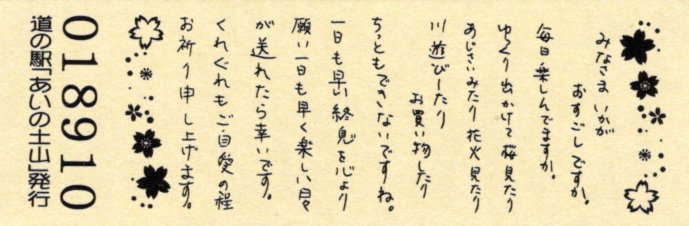 みなさま いかが
おすごしですか。
毎日楽しんでますか。
ゆっくり出かけて桜見たり
あじさいみたり花火見たり
川遊びーたり
お買い物したり
ちっともできないですね。
一日も早い終息を心より
願い一日も早く楽しい日々
が送れたら幸いです。
くれぐれもご自愛の程
お祈り申し上げます。
018910
道の駅「あいの土山」発行